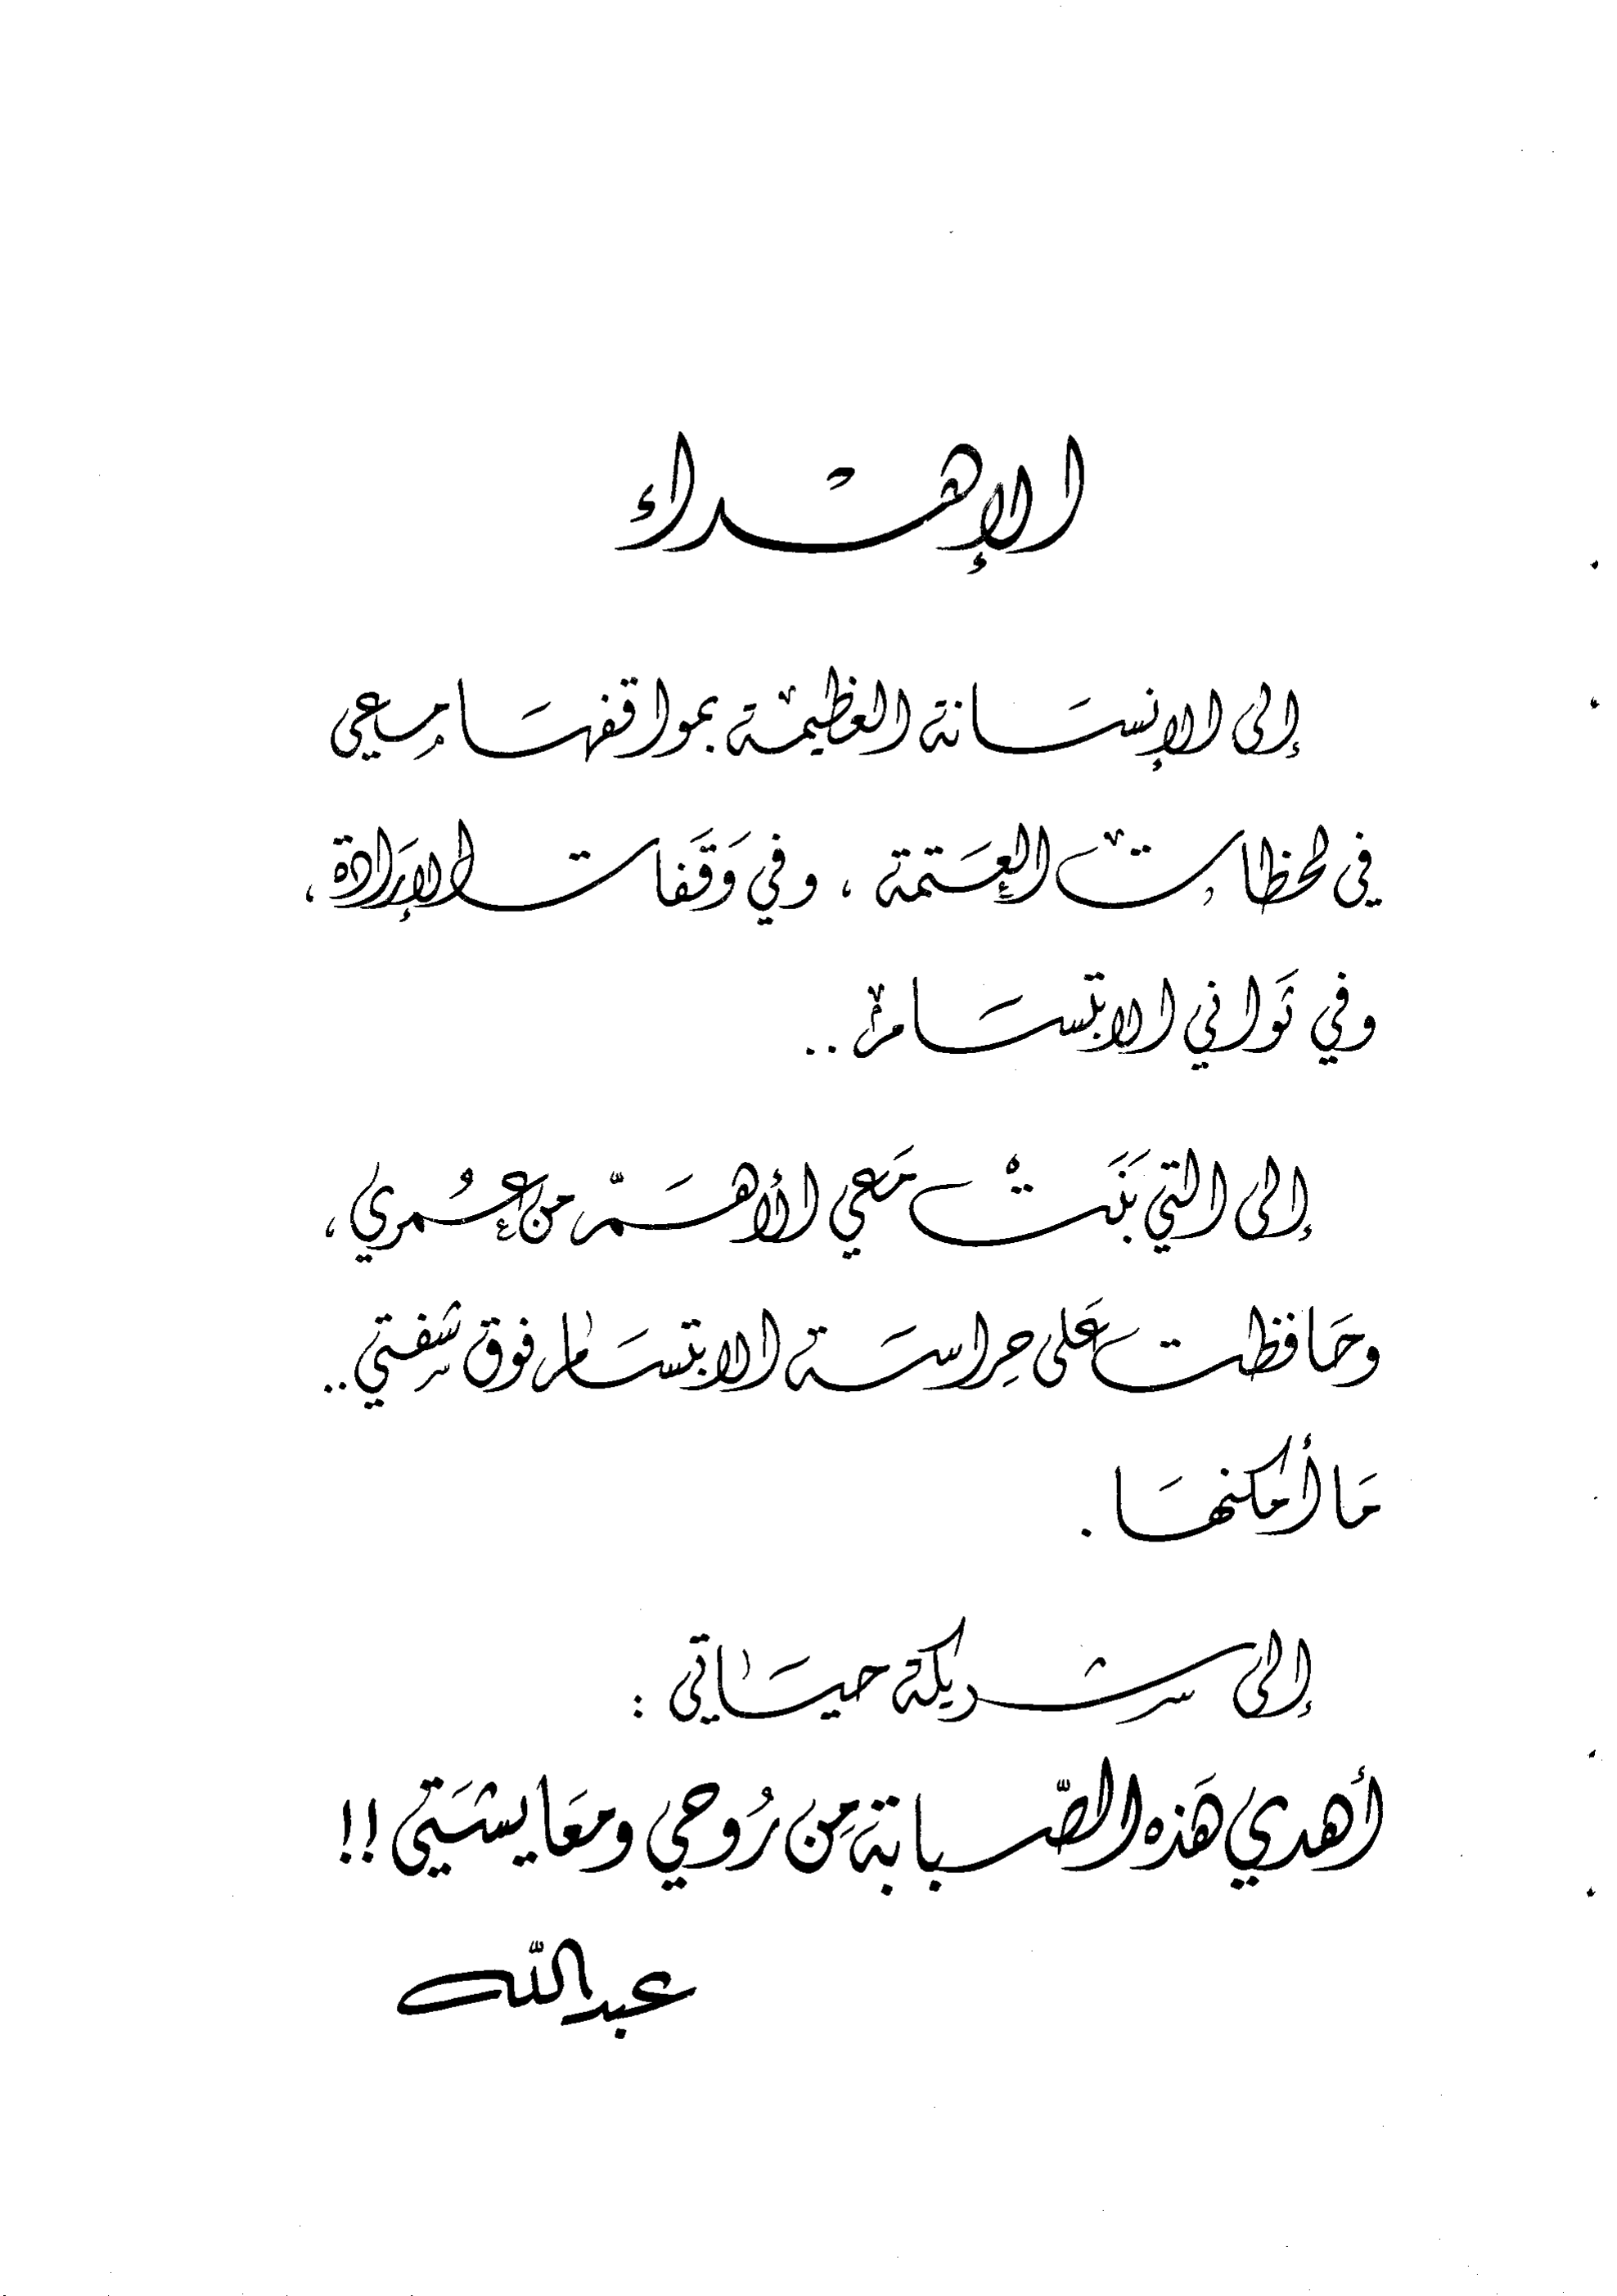 الإهداء
إلى الإنسَانة العظيمة بمواقفهَا معي
في لحظات العَتمة ، وفي وَقَفات الإرَادة ،
وفي ثَواني الابتسَام ..
إلى التي بَنَتْ مَعي الأهَمّ من عُمري ،
وحَافظت عَلى حِراسَة الابتسَام فوق شفتي ..
مَا أمكنهَا .
إلى شريكة حيَاتي :
أهدي هَذه الصّبابة مِن رُوحي ومعَايشَتي !!
عبدالله